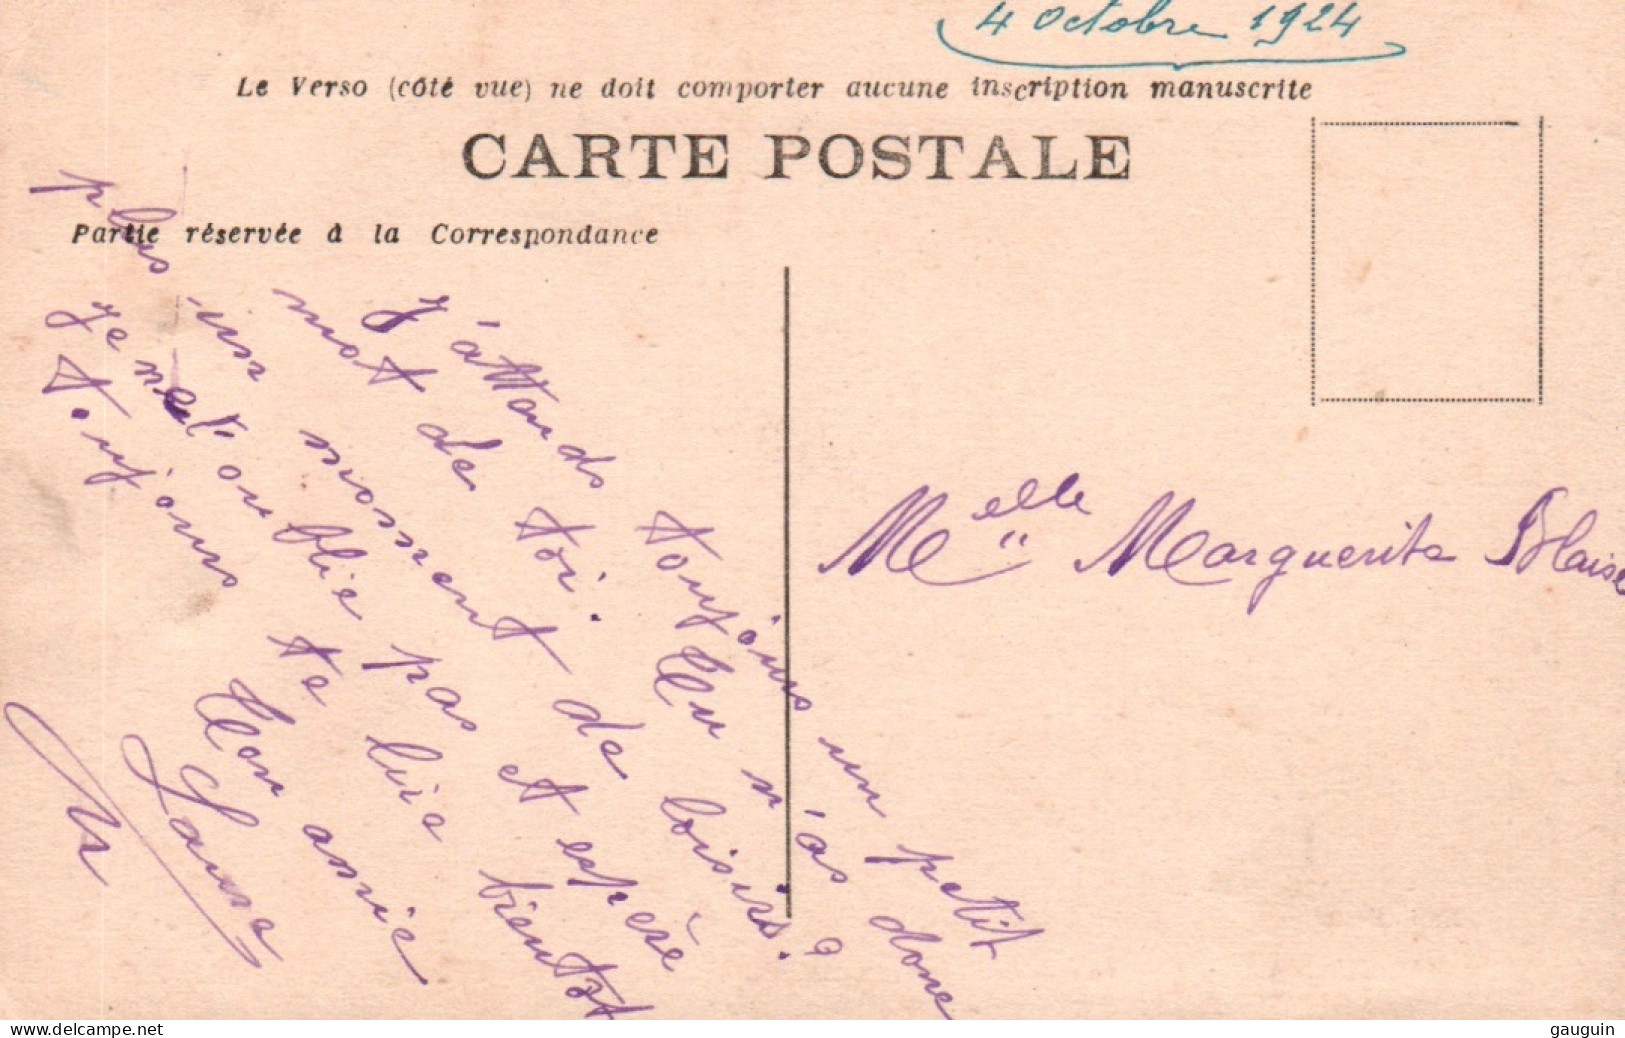 4 octobre 1924
Le Verso (côté vue) ne doit comporter aucune inscription manuscrite
CARTE POSTALE
Partie réservée à la Correspondance
J'attends toujours un petit
mot de toi. Tu n'as donc
plus un moment de loisirs?
Je ne t'oublie pas et espère
toujours te lire bientôt
Ton amie
Laure
Melle Marguerite Blaise
www.delcampe.net
gauguin